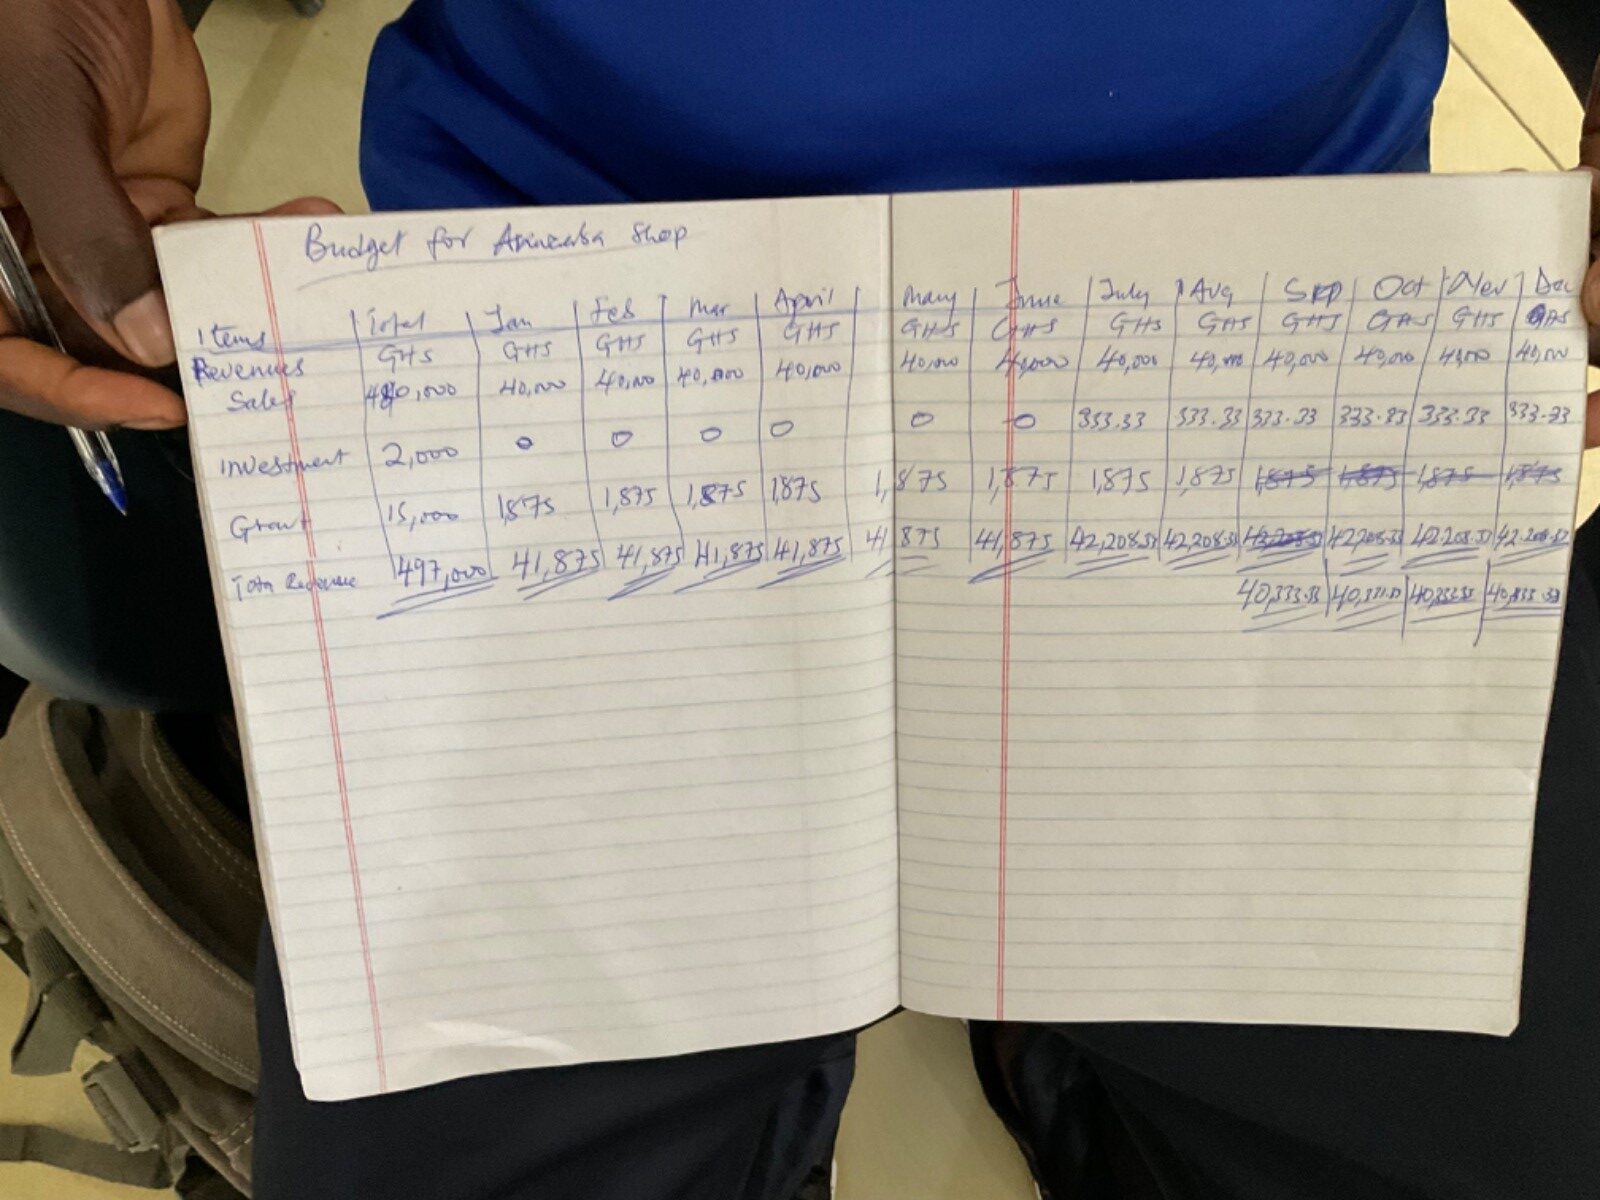 Budget for Asincaba Shop
Items Total Jan Feb Mar April Many June July Aug Sep Oct Nov Dec
GHS GHS GHS GHS GHS GHS GHS GHS GHS GHS GHS GHS GHS
Revenues
Sales 480,000 40,000 40,000 40,000 40,000 40,000 40,000 40,000 40,000 40,000 40,000 40,000 40,000
Investment 2,000 0 0 0 0 0 0 333.33 333.33 333.33 333.33 333.33 333.33
Grant 15,000 1,875 1,875 1,875 1,875 1,875 1,875 1,875 1,875 1,875 1,875 1,875 1,875
Total Revenue 497,000 41,875 41,875 41,875 41,875 41,875 41,875 42,208.33 42,208.33 42,208.33 42,208.33 42,208.33 42,208.33
40,333.33 40,333.33 40,333.33 40,333.33